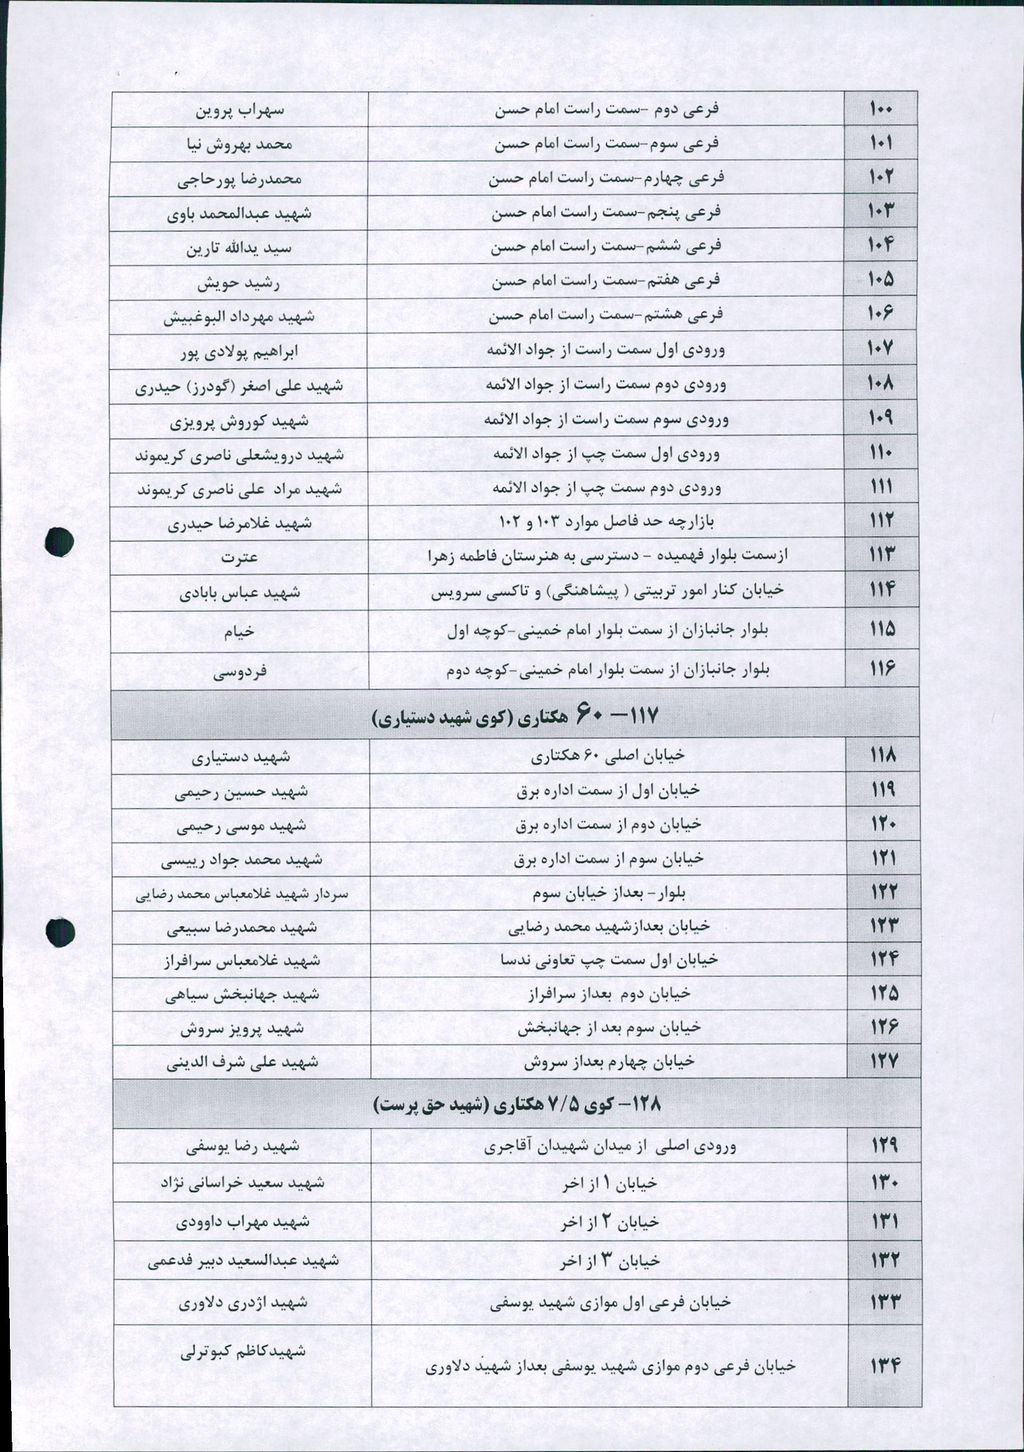 ۱۰۰ فرعی دوم -سمت راست امام حسن سهراب پروین
۱۰۱ فرعی سوم-سمت راست امام حسن محمد بهروش نیا
۱۰۲ فرعی چهارم-سمت راست امام حسن محمدرضا پورحاجی
۱۰۳ فرعی پنجم-سمت راست امام حسن شهید عبدالمحمد باوی
۱۰۴ فرعی ششم-سمت راست امام حسن سید یدالله تارین
۱۰۵ فرعی هفتم-سمت راست امام حسن رشید حویش
۱۰۶ فرعی هشتم-سمت راست امام حسن شهید مهرداد البوغبیش
۱۰۷ ورودی اول سمت راست از جواد الائمه ابراهیم پولادی پور
۱۰۸ ورودی دوم سمت راست از جواد الائمه شهید علی اصغر (گودرز) حیدری
۱۰۹ ورودی سوم سمت راست از جواد الائمه شهید کوروش پرویزی
۱۱۰ ورودی اول سمت چپ از جواد الائمه شهید درویشعلی ناصری کریموند
۱۱۱ ورودی دوم سمت چپ از جواد الائمه شهید مراد علی ناصری کریموند
۱۱۲ بازارچه حد فاصل موارد ۱۰۳ و ۱۰۲ شهید غلامرضا حیدری
۱۱۳ ازسمت بلوار فهمیده - دسترسی به هنرستان فاطمه زهرا عترت
۱۱۴ خیابان کنار امور تربیتی ( پیشاهنگی) و تاکسی سرویس شهید عباس بابادی
۱۱۵ بلوار جانبازان از سمت بلوار امام خمینی-کوچه اول خیام
۱۱۶ بلوار جانبازان از سمت بلوار امام خمینی-کوچه دوم فردوسی
۱۱۷- ۶۰ هکتاری (کوی شهید دستیاری)
۱۱۸ خیابان اصلی ۶۰ هکتاری شهید دستیاری
۱۱۹ خیابان اول از سمت اداره برق شهید حسین رحیمی
۱۲۰ خیابان دوم از سمت اداره برق شهید موسی رحیمی
۱۲۱ خیابان سوم از سمت اداره برق شهید محمد جواد رییسی
۱۲۲ بلوار- بعداز خیابان سوم سردار شهید غلامعباس محمد رضایی
۱۲۳ خیابان بعدازشهید محمد رضایی شهید محمدرضا سبیعی
۱۲۴ خیابان اول سمت چپ تعاونی ندسا شهید غلامعباس سرافراز
۱۲۵ خیابان دوم بعداز سرافراز شهید جهانبخش سیاهی
۱۲۶ خیابان سوم بعد از جهانبخش شهید پرویز سروش
۱۲۷ خیابان چهارم بعداز سروش شهید علی شرف الدینی
۱۲۸- کوی ۷/۵ هکتاری (شهید حق پرست)
۱۲۹ ورودی اصلی از میدان شهیدان آقاجری شهید رضا یوسفی
۱۳۰ خیابان ۱ از اخر شهید سعید خراسانی نژاد
۱۳۱ خیابان ۲ از اخر شهید مهراب داوودی
۱۳۲ خیابان ۳ از اخر شهید عبدالسعید دبیر فدعمی
۱۳۳ خیابان فرعی اول موازی شهید یوسفی شهید اژدری دلاوری
۱۳۴ خیابان فرعی دوم موازی شهید یوسفی بعداز شهید دلاوری شهیدکاظم کبوترلی